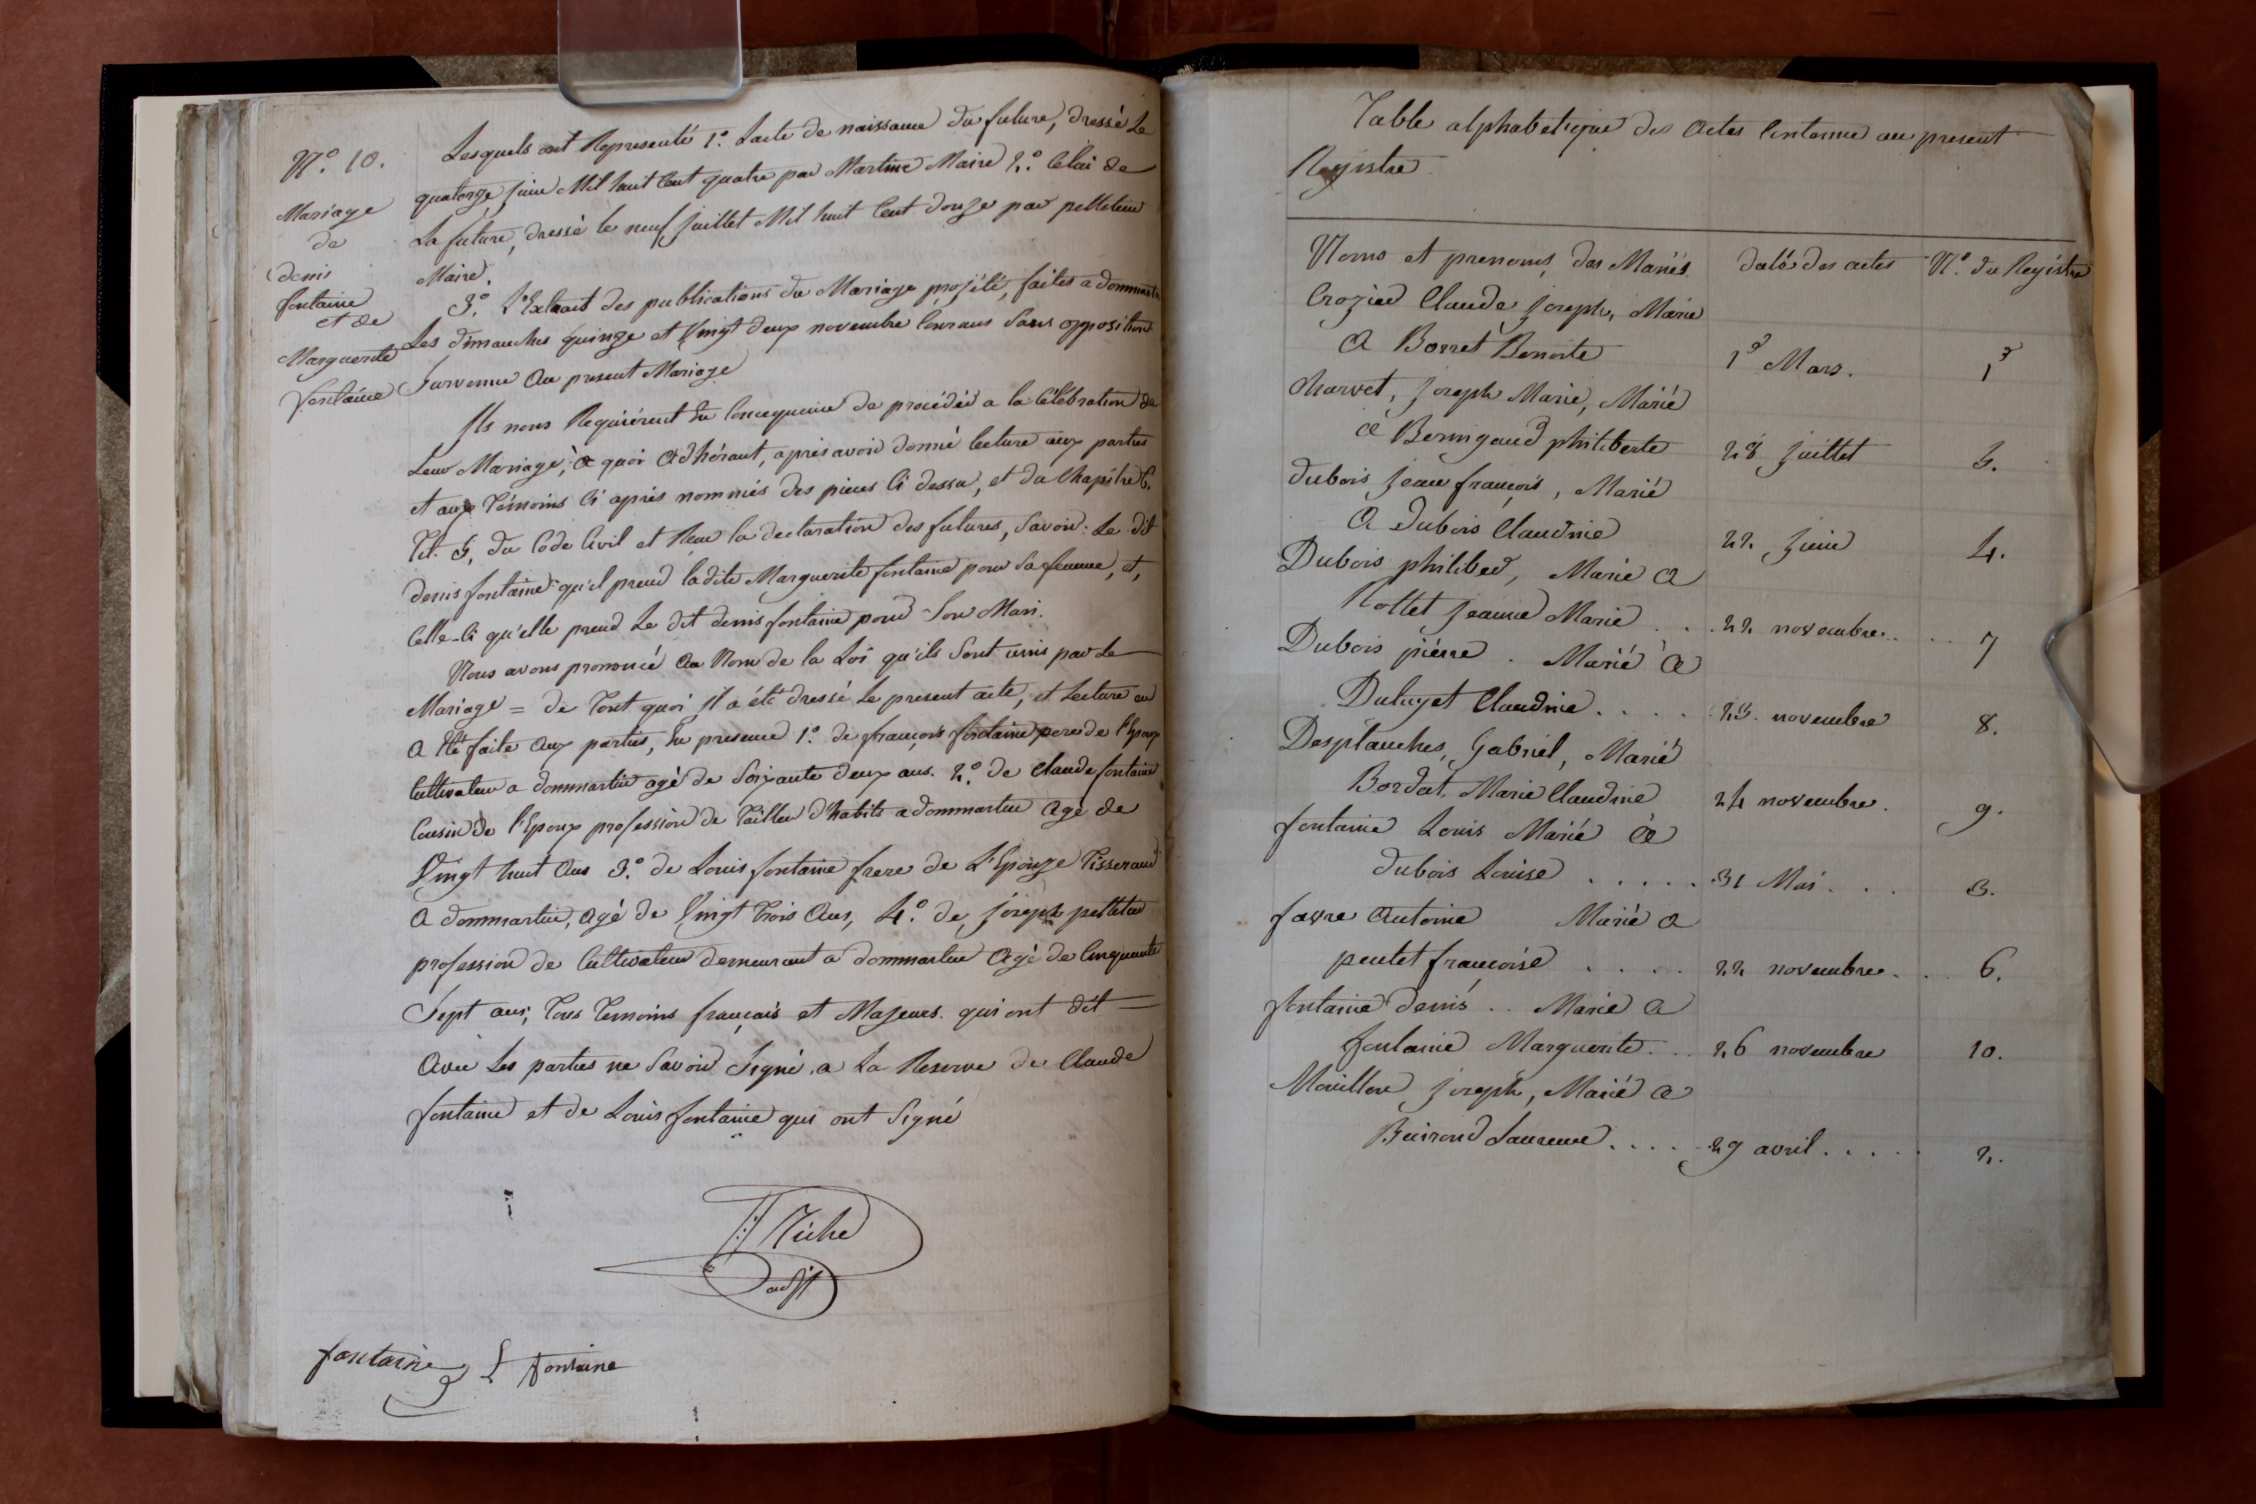 N.º 10.
Mariage
de
denis
fontaine
et de
Marguerite
fontaine
Lesquels ont Representé 1.º Lacte de naissance du future, dressé Le
quatorze juin Mil huit Cent quatre par Martine Maire 2.º Celui de
La future, dressé le neuf juillet Mil huit Cent douze par pelletier
Maire.
3.º L'Extrait des publications du Mariage projété, faites a dommartin
Les dimanches quinze et Vingt deux novembre Courans Sans opposition
Survenue Au present Mariage
Ils nous Requièrent En Concequence de procéder a la Célébration de
Leur Mariage; à quoi Adhérant, après avoir donné lecture aux parties
et aux Témoins Ci après nommés des pieces Ci dessu, et du Chapître 6.
Tit. 5, du Code Civil et Reçu la declaration des futures, Savoir: Le dit
denis fontaine qu'il prend ladite Marguerite fontaine pour Sa femme, et,
Celle-Ci qu'elle prend Le dit denis fontaine pour Son Mari.
Nous avons prononcé Au Nom de la Loi qu'ils Sont unis par Le
Mariage = de Tout quoi Il a été dressé Le present acte, et Lecture en
A Eté faite Aux parties, En presence 1.º de françois fontaine pere de l'Epoux
Cultivateur a dommartin agé de Soixante deux ans. 2.º de Claude fontaine
Cousin de l'Epoux profession de Tailleur d'habits a dommartin Agé de
Vingt huit Ans 3.º de Louis fontaine frere de L'Epouze Tisserand
A dommartin, agé de Vingt Trois Ans, 4.º de joseph pelletier
profession de Cultivateur demeurant a dommartin Agé de Cinquante
Sept ans; Tous Temoins français et Majeurs. qui ont dit
Avec Les parties ne Savoir Signé, a La Reserve de Claude
fontaine et de Louis fontaine qui ont Signé
adjt
fontaine L fontaine
Table alphabetique des Actes Contenue au present
Registre
Noms et prenoms des Mariés daté des actes N.º du Registre
Crozier Claude joseph, Marié
A Borret Benoite 1er Mars. 1er
Charvet, joseph Marie, Marié
à Bernigaud philiberte 28 juillet 5.
dubois jean françois, Marié
A dubois Claudine 22 juin 4.
Dubois philiber, Marié A
Nollet Jeanne Marie . . 22 novembre . . . 7
Dubois pièrre . Marié à
Dutuyet Claudine . . . . 23 novembre 8.
Desplanches, Gabriel, Marié
Bordat Marie Claudine 24 novembre. 9.
fontaine Louis Marié à
dubois Louise . . . . . 31 Mai . . . 3.
favre Antoine Marié a
peutet françoise . . . . 22 novembre . . 6.
fontaine denis . . Marié A
fontaine Marguerite . . 26 novembre 10.
Mouillon joseph, Marié A
Buirond Laurence . . . . 29 avril . . . . . 2.